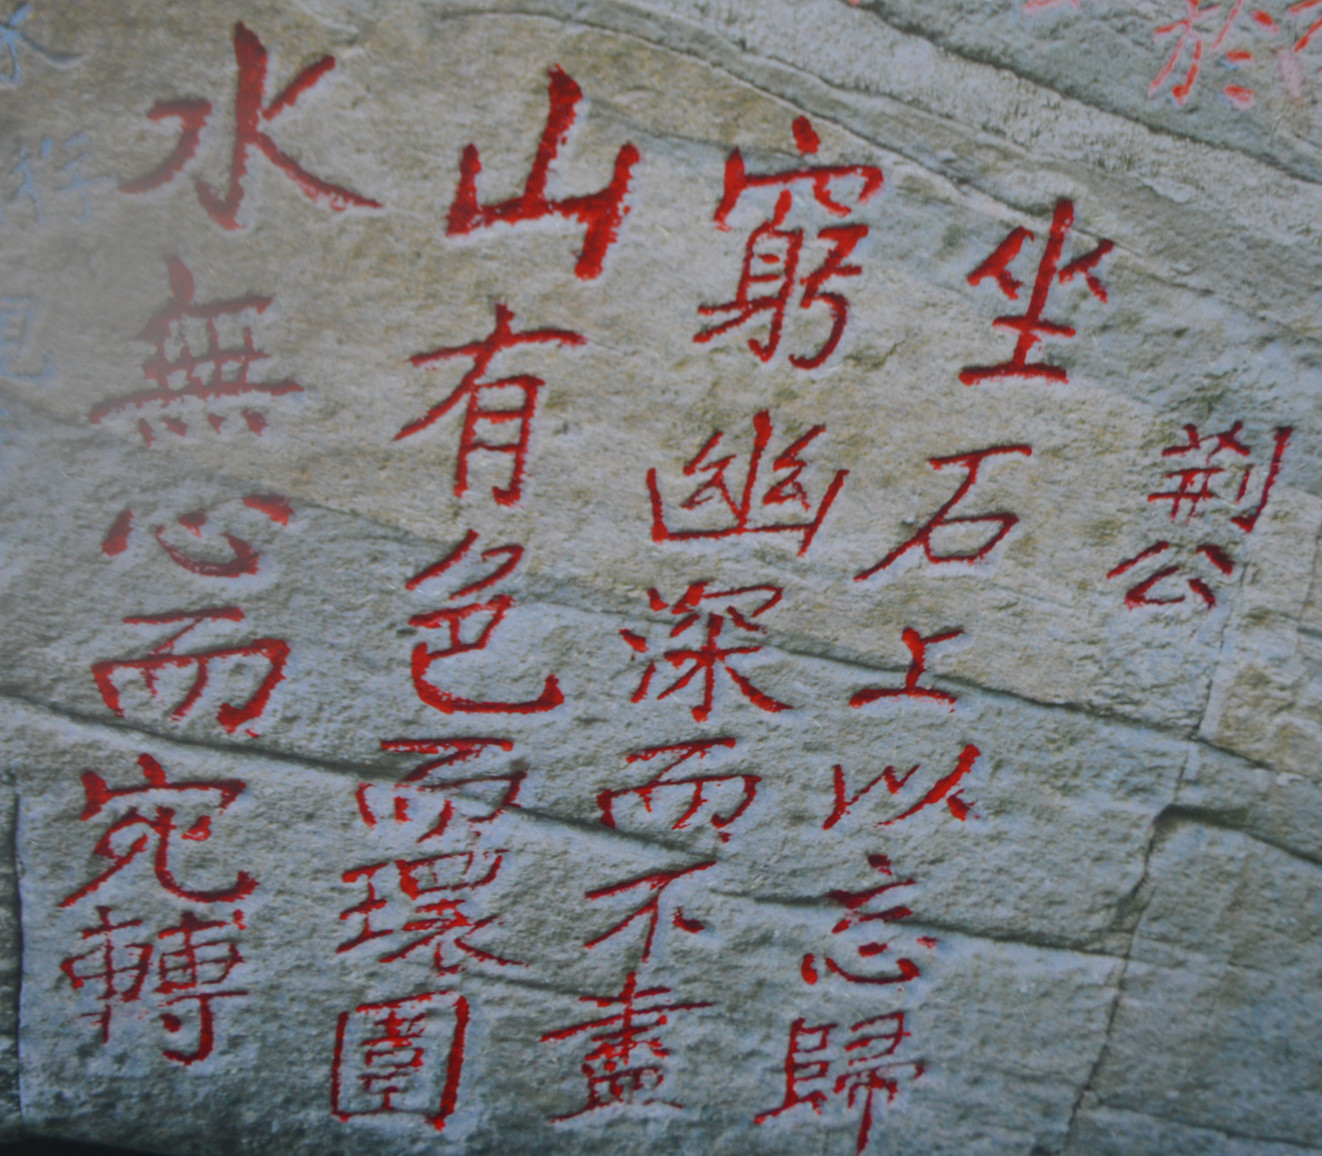 水無心而宛轉
山有色而環圍
窮幽深而不盡
坐石上以忘歸
荆公
於